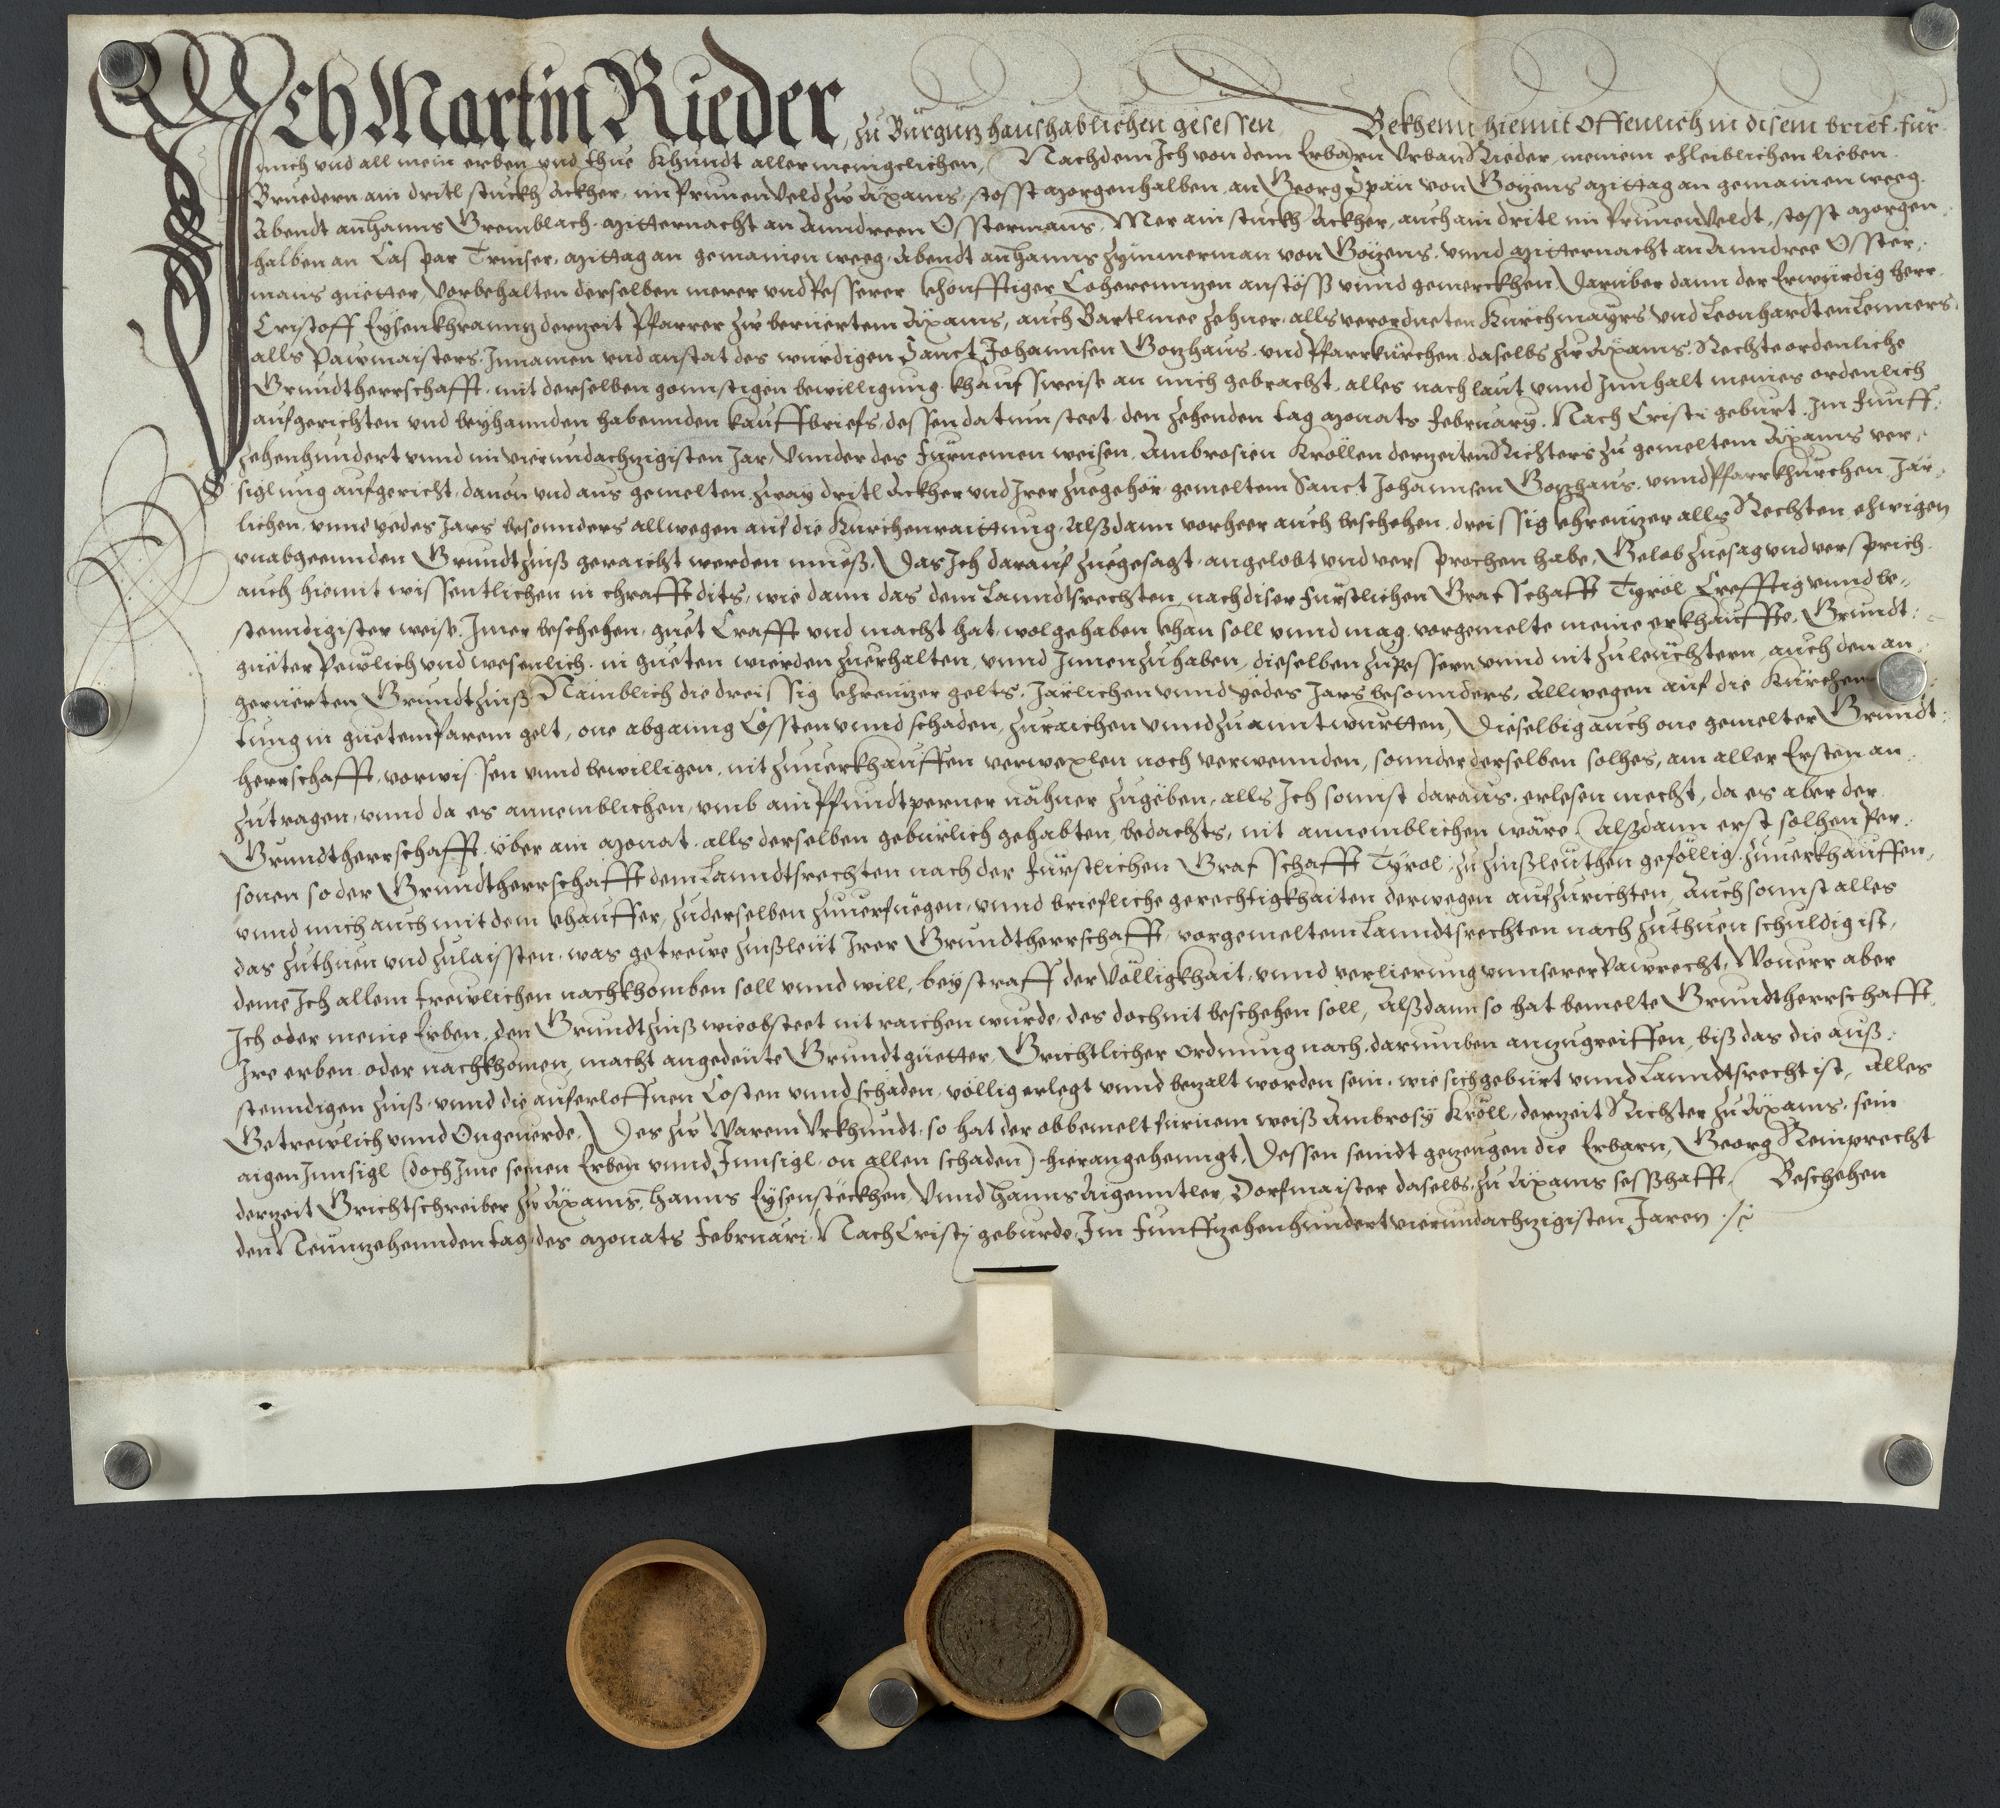 Ich Martin Rieder, zu Bürgutz haushablichen gesessen Bekhenn hiemit offenlich in disem brief, für
mich vnd all mein erben, vnd thue khundt allermenigclichen, Nachdem Ich von dem Erbarn Vrban Rieder, meinem ehleiblichen lieben
Bruedern ain dritl stuckh ackher, im Prunen Veld zw Axams, stosst Morgenhalben an Georg Span von Götzens Mittag an gemainen weeg
Abendt an Hanns Gremblach, Mitternacht an Anndreen Ostermans, Mer ain stuckh Ackher, auch ain dritl im Prunenveldt, stosst Morgen
halben an Caspar Trinser, Mittag an gemainen weeg, Abendt an Hanns Zymmerman von Götzens, vnnd Mitternacht an Anndree Oster
mans guetter, Vorbehalten derselben merer vnd Pesserer khonfftiger Coherenntzen anstöss vnnd gemerckhen, Darüber dann der Erwürdig herr
Cristoff Eysenkhranntz derzeit Pfarrer zw berüertem Axams, auch Bartlmee Zehner, alls verordneten Kürchmayrs vnd Leonhardten Lenners
alls Pawmaisters, Innamen vnd anstat des würdigen Sanct Johannsen Gotzhaus, vnd Pfarrkürchen daselbs zw Axams, Rechte ordenliche
Grundtherrschafft, mit derselben gonnstigen bewilligung, khaufsweiss an mich gebracht, alles nach laut vnnd Innhalt meines ordenlich
aufgerichten vnd beyhannden habennden kauffbriefs, dessen datum steet den zehenden tag Monats February, Nach Cristi geburt, Im funff
zehenhundert vnnd im vierundachtzigisten Jar, Vnnder des fürnemen weisen, Ambrosien Kröllen derzeiten Richters zu gemeltem Axams ver
siglung aufgericht, dauon vnd aus gemelten zway dritl ackher vnd Irer zuegehör gemeltem Sanct Johannsen Gotzhaus, vnnd Pfarrkhürchen, Jär
lichen, vnnd yedes Jars besonnders allwegen auf die Kürchenraittung, Alßdann vorheer auch beschehen, dreissig khreützer alls Rechten ehwigen
vnabgeennden Grundtzinß geraicht werden mueß, Das Ich darauf zuegesagt, angelobt vnd versprochen habe, Gelob zuesag vnd versprich
auch hiemit wissentlichen in chrafft dits, wie dann das dem Lanndtsrechten, nach diser fürstlichen Grafschafft Tyrol Crefftig vnnd be
stenndigister weiß, Imer beschehen, guet Crafft vnd macht hat, wolgehaben khan soll vnnd mag, vorgemelte meine erkhauffte, Grundt
güeter Pewlich vnd wesenlich, in gueten wierden zuerhalten, vnnd Innenzuhaben, dieselben zu pessern vnnd nit zuleüchtern, auch den an
geruerten Grundtzinß Nämblich die dreissig khreützer gelts, Järlichen vnnd yedes Jars besonnders, Allwegen auf die Kürchen
tung in guetem Parem gelt, one abganng Cossten vnnd schaden, zuraichen vnnd zuanntwurtten, Dieselbig auch one gemelter Grundt
herrschafft, vorwissen vnnd bewilligen, nit zuuerkhauffen verwexlen noch verwennden, sonnder derselben solhes, am aller Ersten an
zutragen, vnnd da es annemblichen, vmb ain Pfundt perner nähner zugeben, alls Ich sonnst daraus erlesen mecht, da es aber der
Grundtherrschafft, über ain Monat, alls derselben gebürlich gehabten, bedachts, nit annemblichen wäre, Alßdann erst solhen Per
sonen so der Grundtherrschafft dem Lanndtsrechten nach der fürstlichen Grafschafft Tyrol, zu zinßleüthen geföllig, zuuerkhauffen,
vnnd mich auch mit dem khauffer, zu derselben zuuerfuegen, vnnd briefliche gerechtigkhaiten derwegen aufzurichten, Auch sonnst alles
das zuthuen vnd zulaissten, was getrewe zinßleüt Irer Grundtherrschafft, vorgemeltem Lanndtsrechten nach zuthuen schuldig ist,
deme Ich allem trewlichen nachkhomben soll vnnd will, bey straff der Völligkhait, vnnd verlierung vnnserer Pawrecht, Wouerr aber
Ich oder meine Erben, den Grundtzinß wie obsteet nit raichen wurde, des doch nit beschehen soll, Alßdann so hat bemelte Grundtherrschafft,
Ire erben oder nachkhomen, macht angedeüte Grundtgüetter, Grichtlicher ordnung nach, darumben anzugreiffen, biß das die auß
stenndigen zinß, vnnd die auferloffnen Costen vnnd schäden, völlig erlegt vnnd bezalt worden sein, wie sich gebürt vnnd Lanndtsrecht ist, Alles
Getrewlich vnnd Ongeuerde, Des zw Warem Vrkhundt, so hat der obbemelt fürnem weiß Ambrosy Kröll, derzeit Richter zu Axams, sein
aigen Innsigl (doch Ime seinen Erben vnnd Innsigl, on allen schaden) hierangehenngt, Dessen seindt gezeugen die Erbarn, Georg Reinprecht
derzeit Grichtschreiber zw Axams, Hanns Eysensteckhen, Vnnd Hanns Aigenntler, Dorfmaister daselbs, zu Axams sesshafft, Beschehen
den Neüntzehennden tag des Monats Februari, Nach Cristj geburde, Im funffzehenhundert vierundachtzigisten Jaren